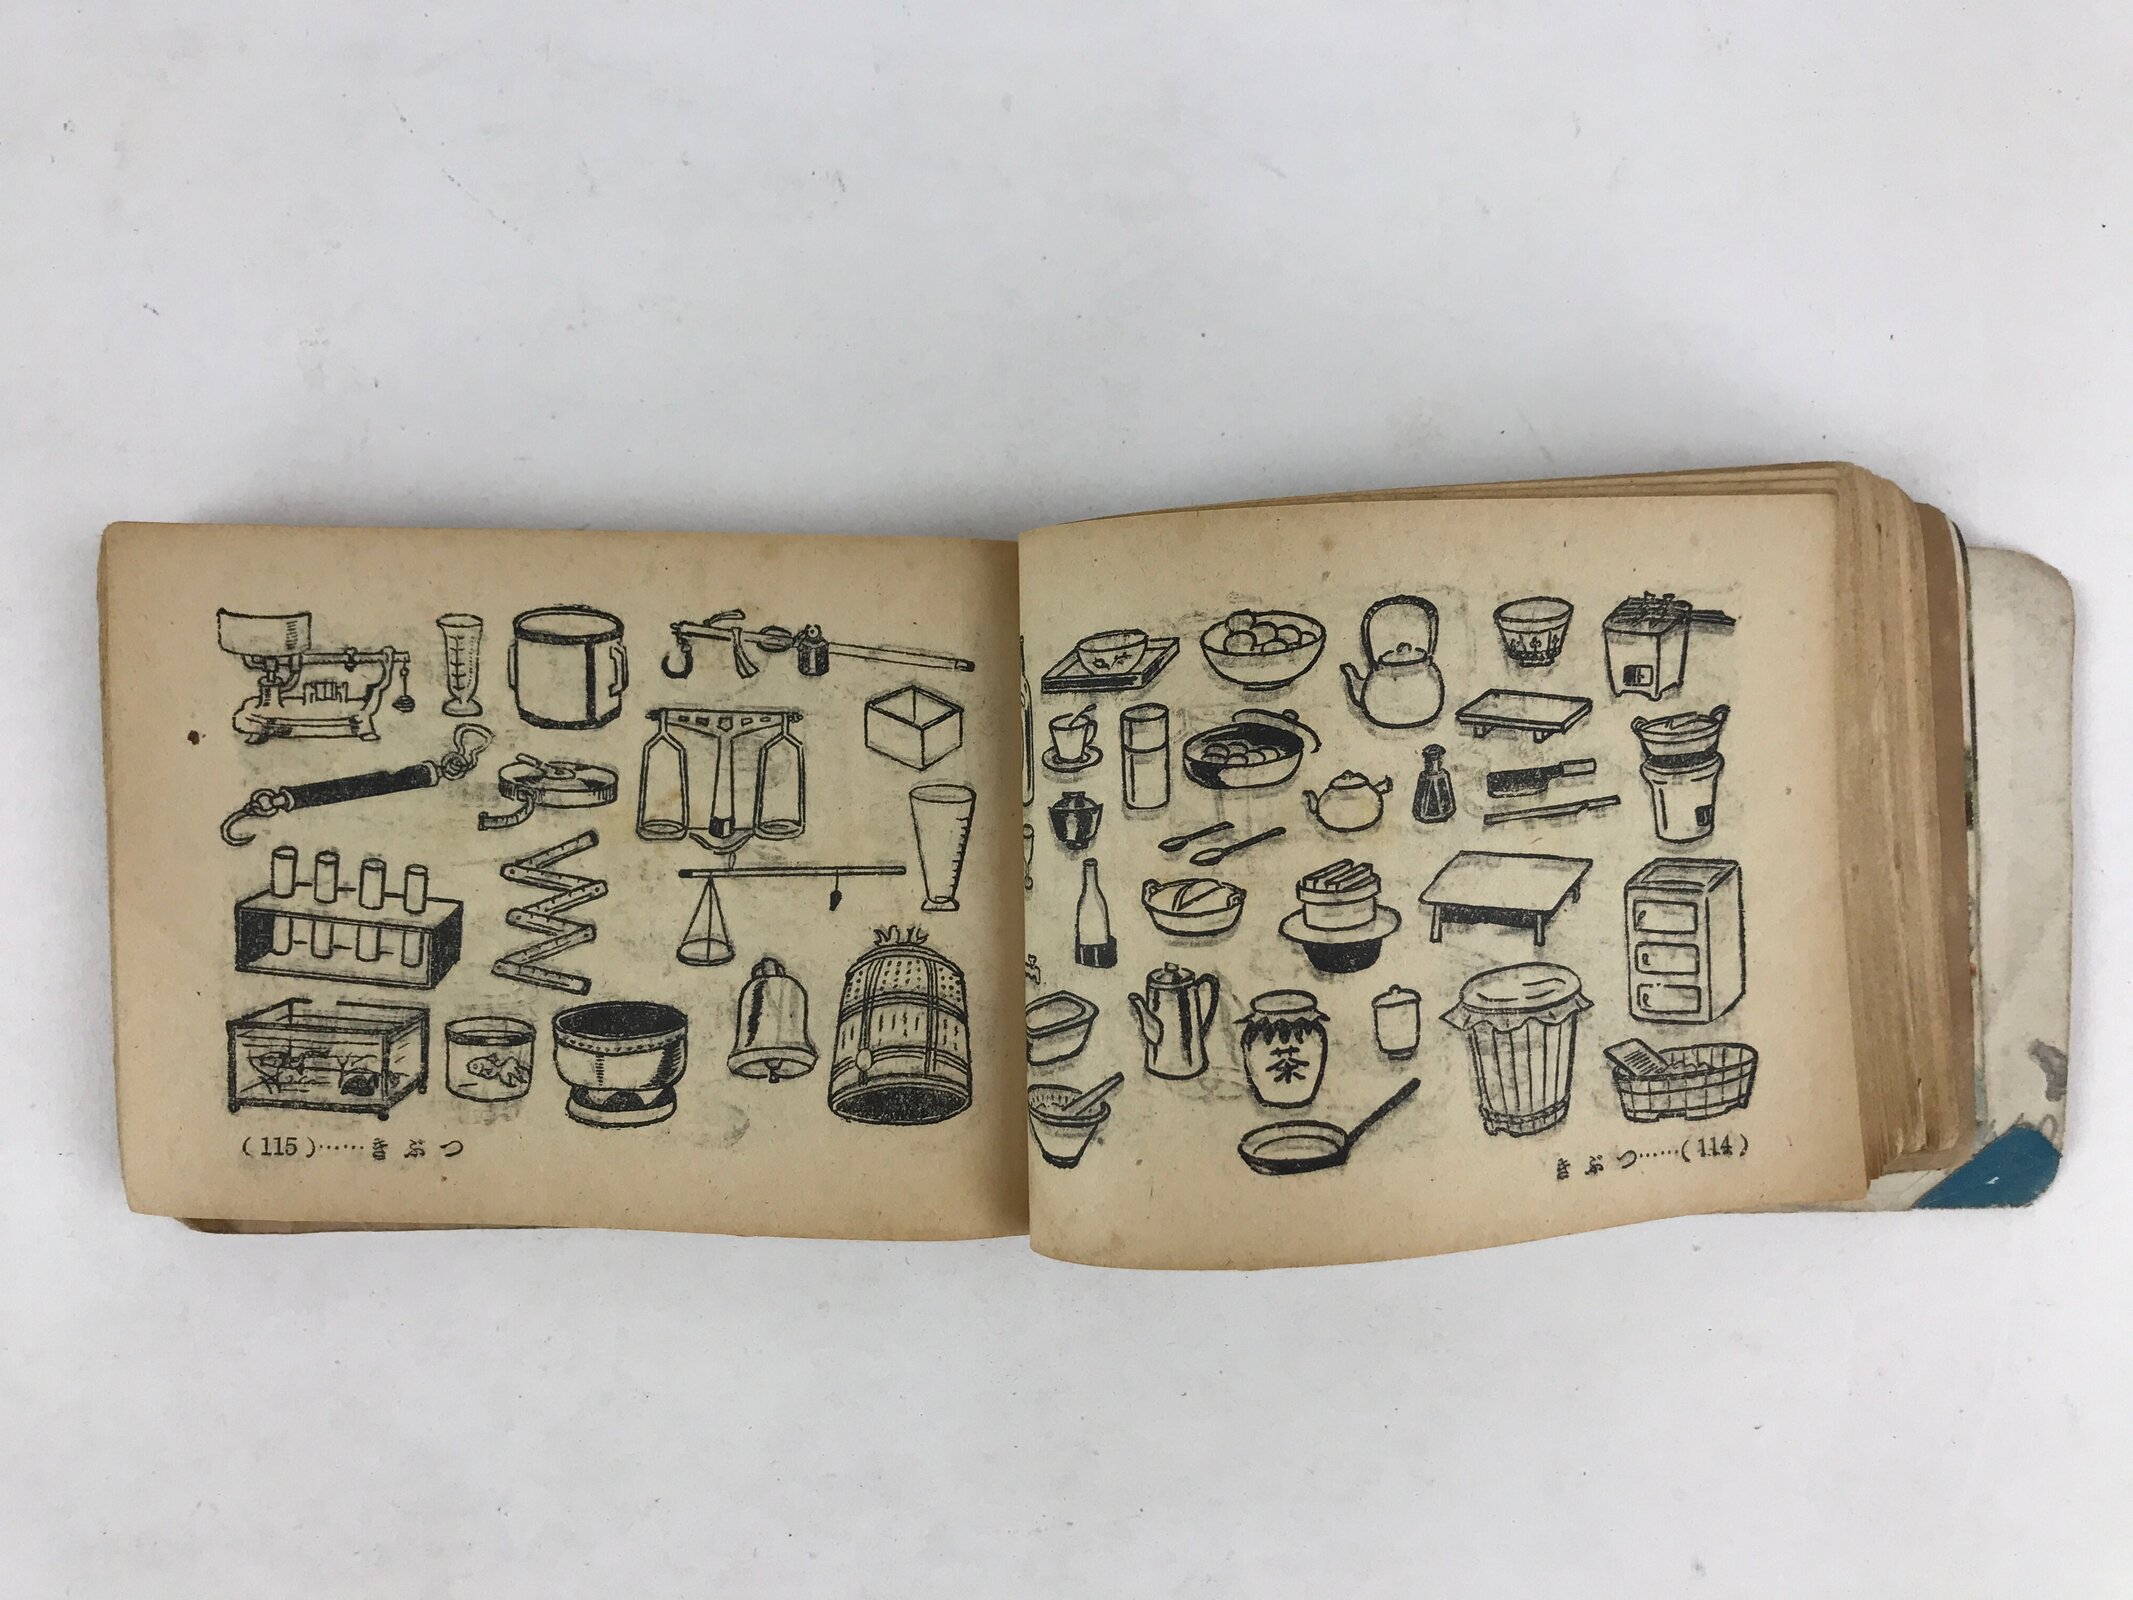 茶
きぶつ……(114)
(115)……きぶつ